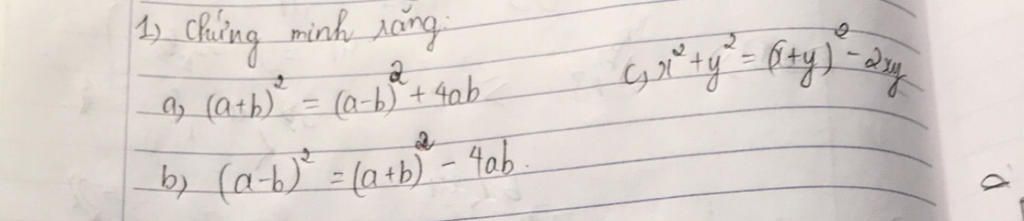 1) Chứng minh rằng:
a) (a+b)² = (a-b)² + 4ab
c) x² + y² = (x+y)² - 2xy
b) (a-b)² = (a+b)² - 4ab.